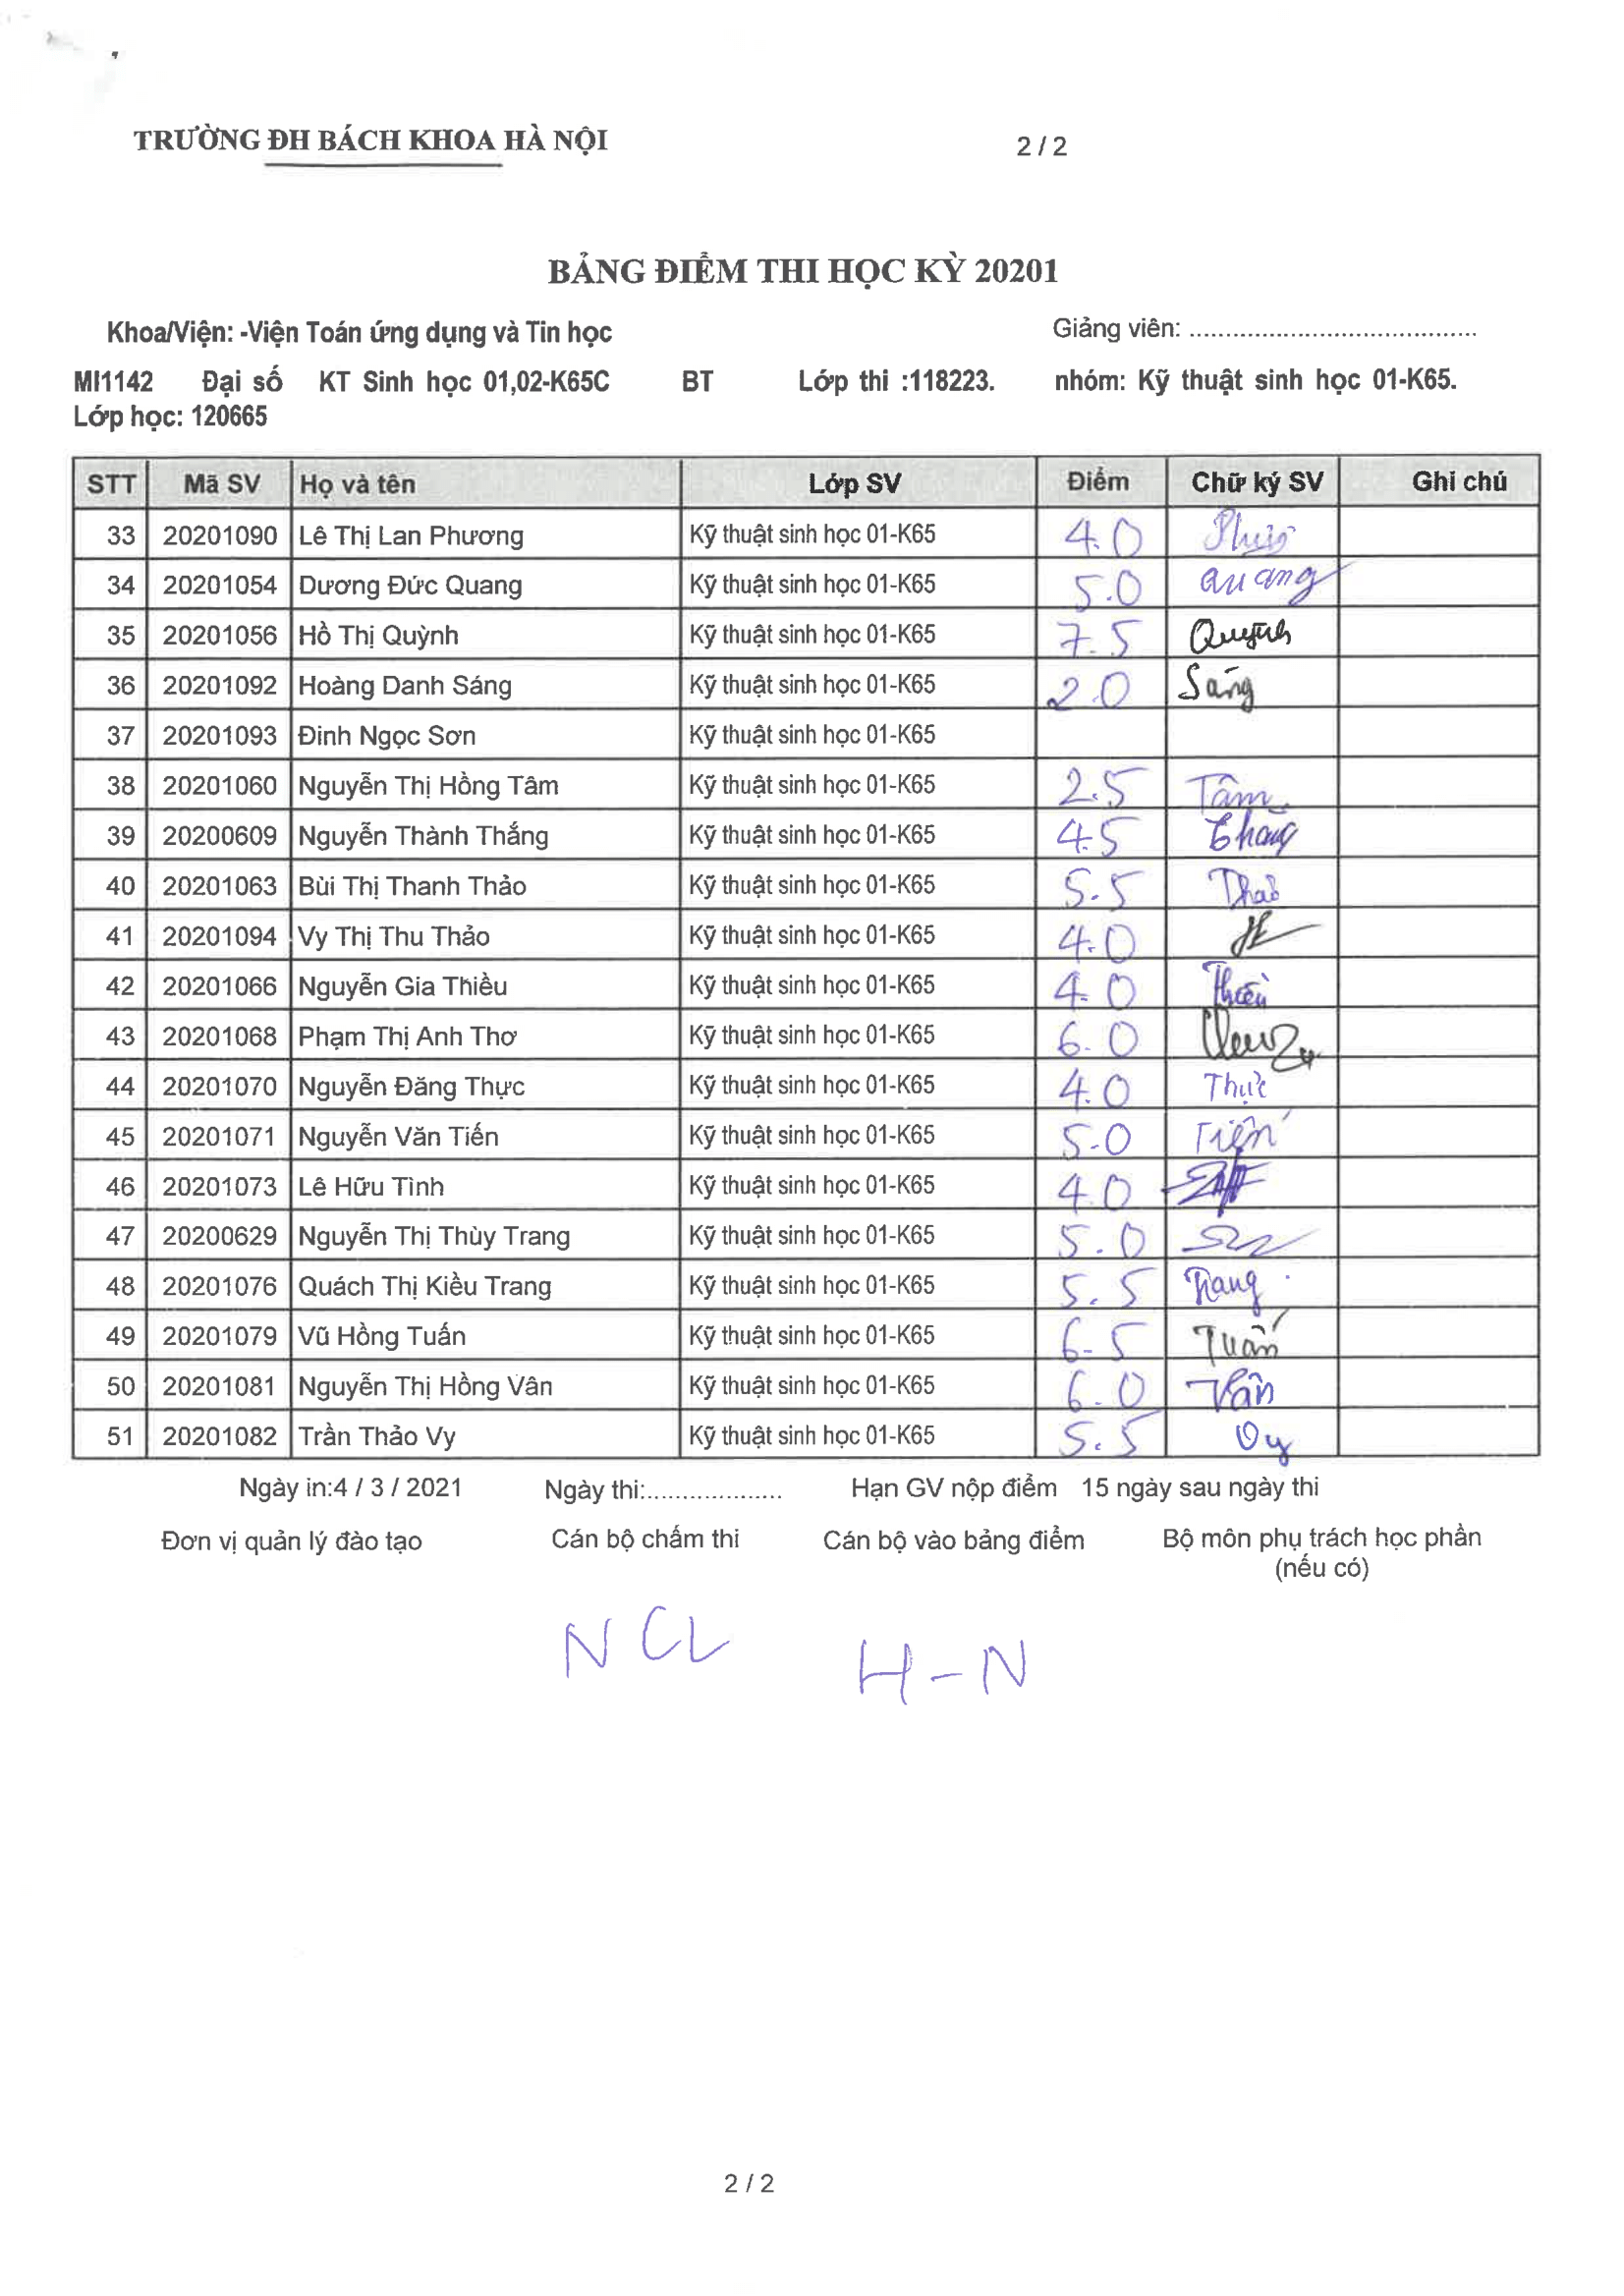 TRƯỜNG ĐH BÁCH KHOA HÀ NỘI 2 / 2
BẢNG ĐIỂM THI HỌC KỲ 20201
Khoa/Viện: -Viện Toán ứng dụng và Tin học Giảng viên: ........................................
MI1142 Đại số KT Sinh học 01,02-K65C BT Lớp thi :118223. nhóm: Kỹ thuật sinh học 01-K65.
Lớp học: 120665
STT Mã SV Họ và tên Lớp SV Điểm Chữ ký SV Ghi chú
33 20201090 Lê Thị Lan Phương Kỹ thuật sinh học 01-K65 4.0
34 20201054 Dương Đức Quang Kỹ thuật sinh học 01-K65 5.0 Quang
35 20201056 Hồ Thị Quỳnh Kỹ thuật sinh học 01-K65 7.5 Quỳnh
36 20201092 Hoàng Danh Sáng Kỹ thuật sinh học 01-K65 2.0 Sáng
37 20201093 Đinh Ngọc Sơn Kỹ thuật sinh học 01-K65
38 20201060 Nguyễn Thị Hồng Tâm Kỹ thuật sinh học 01-K65 2.5 Tâm
39 20200609 Nguyễn Thành Thắng Kỹ thuật sinh học 01-K65 4.5 Thắng
40 20201063 Bùi Thị Thanh Thảo Kỹ thuật sinh học 01-K65 5.5 Thảo
41 20201094 Vy Thị Thu Thảo Kỹ thuật sinh học 01-K65 4.0
42 20201066 Nguyễn Gia Thiều Kỹ thuật sinh học 01-K65 4.0 Thiều
43 20201068 Phạm Thị Anh Thơ Kỹ thuật sinh học 01-K65 6.0
44 20201070 Nguyễn Đăng Thực Kỹ thuật sinh học 01-K65 4.0 Thực
45 20201071 Nguyễn Văn Tiến Kỹ thuật sinh học 01-K65 5.0 Tiến
46 20201073 Lê Hữu Tình Kỹ thuật sinh học 01-K65 4.0
47 20200629 Nguyễn Thị Thùy Trang Kỹ thuật sinh học 01-K65 5.0
48 20201076 Quách Thị Kiều Trang Kỹ thuật sinh học 01-K65 5.5 Trang
49 20201079 Vũ Hồng Tuấn Kỹ thuật sinh học 01-K65 6.5 Tuấn
50 20201081 Nguyễn Thị Hồng Vân Kỹ thuật sinh học 01-K65 6.0 Vân
51 20201082 Trần Thảo Vy Kỹ thuật sinh học 01-K65 5.5 Vy
Ngày in:4 / 3 / 2021 Ngày thi:................... Hạn GV nộp điểm 15 ngày sau ngày thi
Đơn vị quản lý đào tạo Cán bộ chấm thi Cán bộ vào bảng điểm Bộ môn phụ trách học phần
(nếu có)
NCL H-N
2 / 2